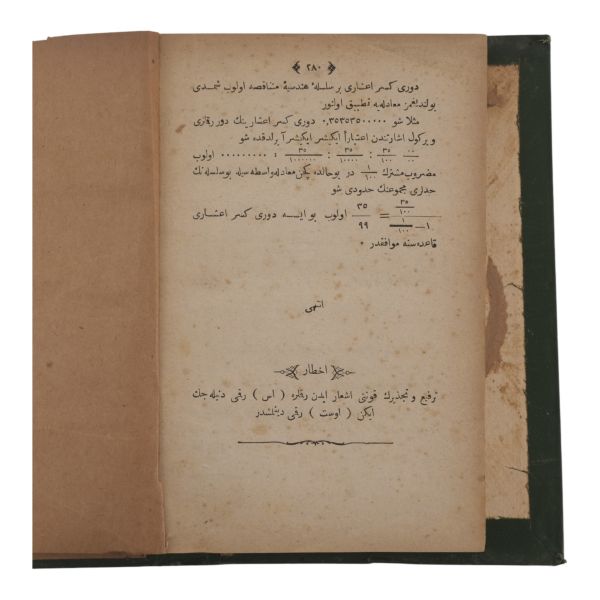 ٢٨٠
دوری كسر اعشاری بر سلسلهٔ هندسیهٔ متناقصه اولوب شمدی
بولدیغمز معادله یه تطبیق اولنور
مثلا شو ٠,٣٥٣٥٣٥٠٠٠٠٠ دوری كسر اعشارینك دور رقملری
و یركول اشارتندن اعتباراً ایكیشر ایكیشر آیرلدقده شو
٣٥/١٠٠ : ٣٥/١٠٠٠٠ : ٣٥/١٠٠٠٠٠٠ : ٠٠٠٠٠٠٠٠٠ اولوب
مضروب مشترك ١/١٠٠ در بو حالده پكن معادله واسطه سیله بو سلسله نك
حدلری مجموعنك حدودی شو
٣٥/١٠٠ / ١−١/١٠٠ = ٣٥/٩٩ اولوب بو ایسه دوری كسر اعشاری
قاعده سنه موافقدر ٠
انتهی
اخطار
ترفیع و تجذیرك قوتنی اشعار ایدن رقملره ( اس ) رقمی دنیله جك
ایكن ( اوست ) رقمی دینلمشدر